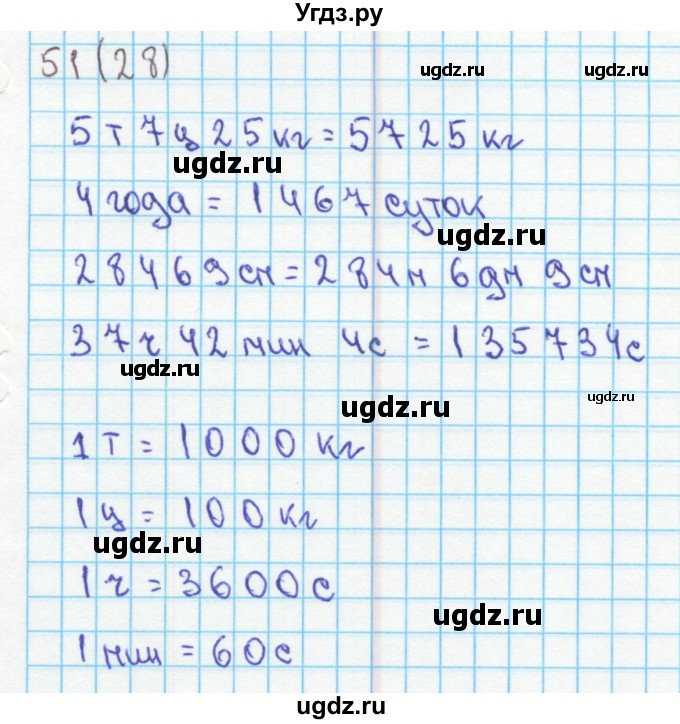 Угдз.ру
51 (28)
ugdz.ru ugdz.ru
5 т 7 ц 25 кг = 5725 кг
ugdz.ru
4 года = 1467 суток
ugdz.ru
28469 см = 284 м 6 дм 9 см
37 ч 42 мин 4 с = 135734 с
ugdz.ru
ugdz.ru
ugdz.ru
1 т = 1000 кг
1 ц = 100 кг
ugdz.ru
1 ч = 3600 с
ugdz.ru
1 мин = 60 с
ugdz.ru